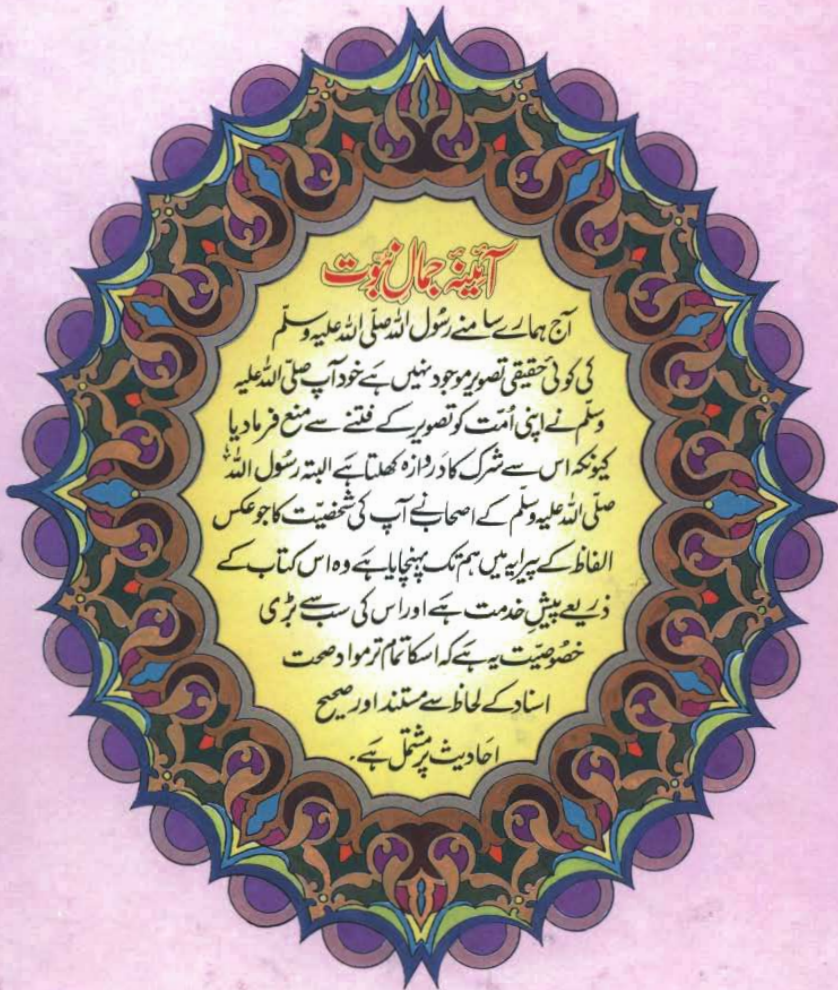 آئینۂ جمال نبوت
آج ہمارے سامنے رسُول اللہ صلّی اللہ علیہ وسلّم
کی کوئی حقیقی تصویر موجود نہیں ہے خود آپ صلّی اللہ علیہ
وسلّم نے اپنی اُمّت کو تصویر کے فتنے سے منع فرما دیا
کیونکہ اس سے شرک کا دروازہ کھلتا ہے البتہ رسُول اللہ
صلّی اللہ علیہ وسلّم کے اصحاب نے آپ کی شخصیّت کا جو عکس
الفاظ کے پیرایہ میں ہم تک پہنچایا ہے وہ اس کتاب کے
ذریعے پیشِ خدمت ہے اور اس کی سب سے بڑی
خصُوصیّت یہ ہے کہ اسکا تمام تر مواد صحت
اسناد کے لحاظ سے مستند اور صحیح
احادیث پر مشتمل ہے۔